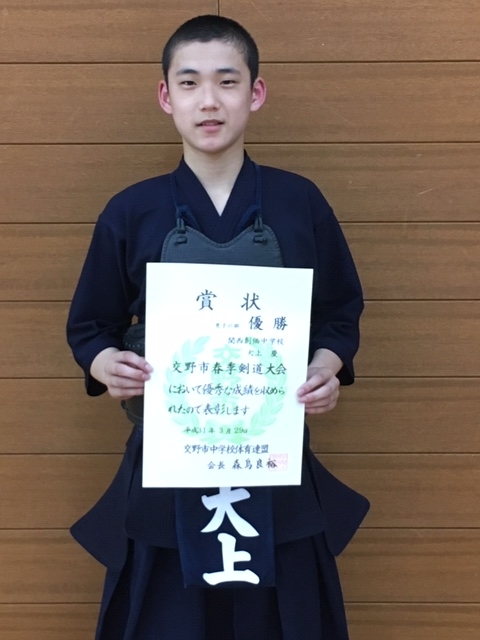 賞状
優勝
関西創価中学校
大上 慶
交野市春季剣道大会
において優秀な成績を収めら
れたので表彰します
平成31年3月29日
交野市中学校体育連盟
会長 森島良裕
大上